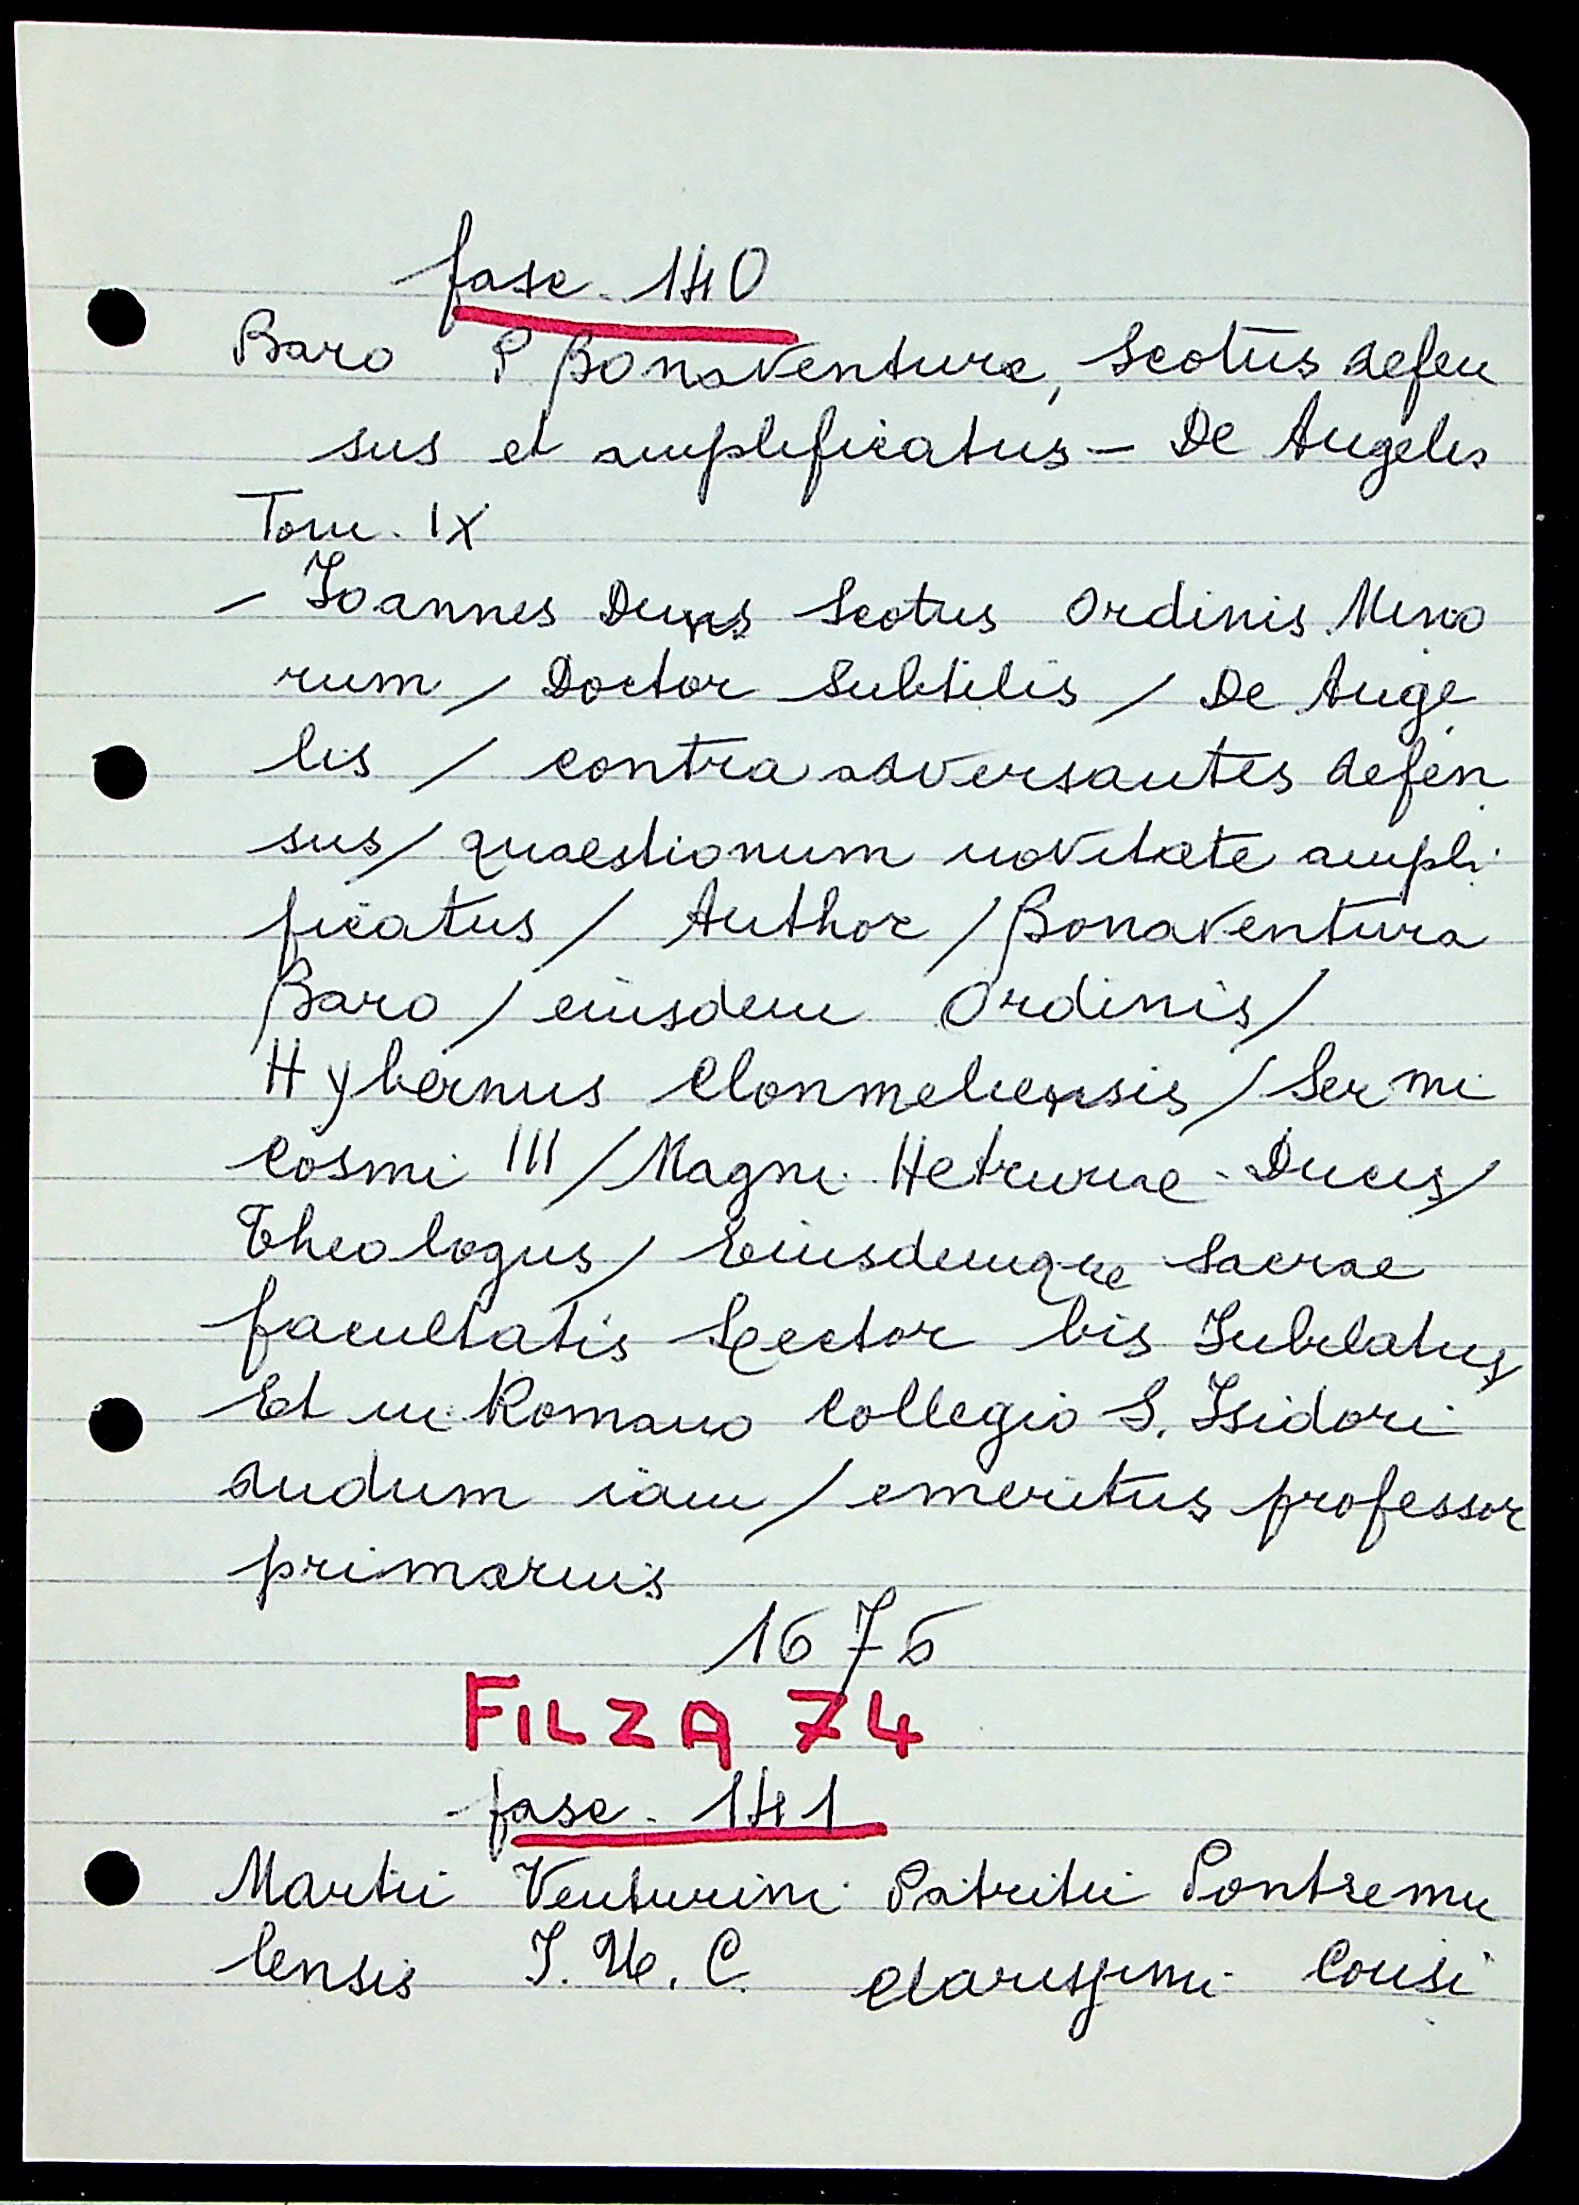 fasc. 140
Baro P Bonaventura, Scotus defen
sus et amplificatus - De Angelis
Tom. IX
- Ioannes Duns Scotus Ordinis Mino
rum / Doctor Subtilis / De Ange
lis / contra adversantes defen
sus / quaestionum novitate ampli
ficatus / Author / Bonaventura
Baro / eiusdem Ordinis /
Hybernus Clonmeliensis / Ser mi
Cosmi III / Magni Hetruriae Ducis /
Theologus / Eiusdemque Sacrae
facultatis Lector bis Iubilatus
Et in Romano Collegio S. Isidori
dudum iam / emeritus professor
primarius
1676
FILZA 74
fasc. 141
Martii Venturini Patritii Pontremu
lensis I. U. C. clarissimi Consi